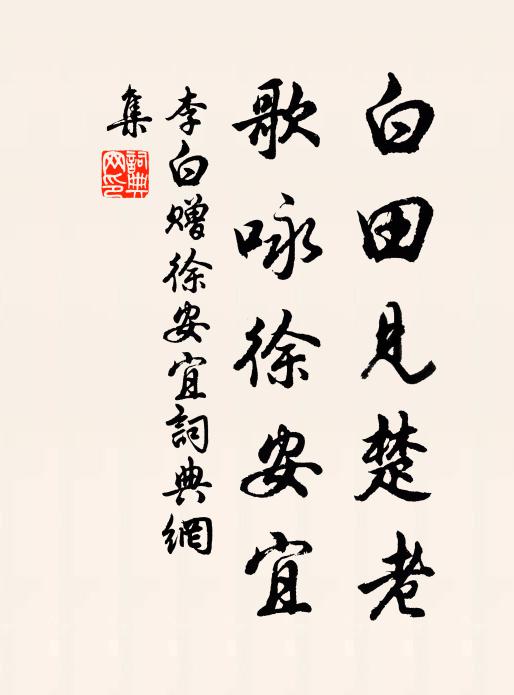 白田見楚老
歌咏徐安宜
李白赠徐安宜詞典網
集
詞典网印